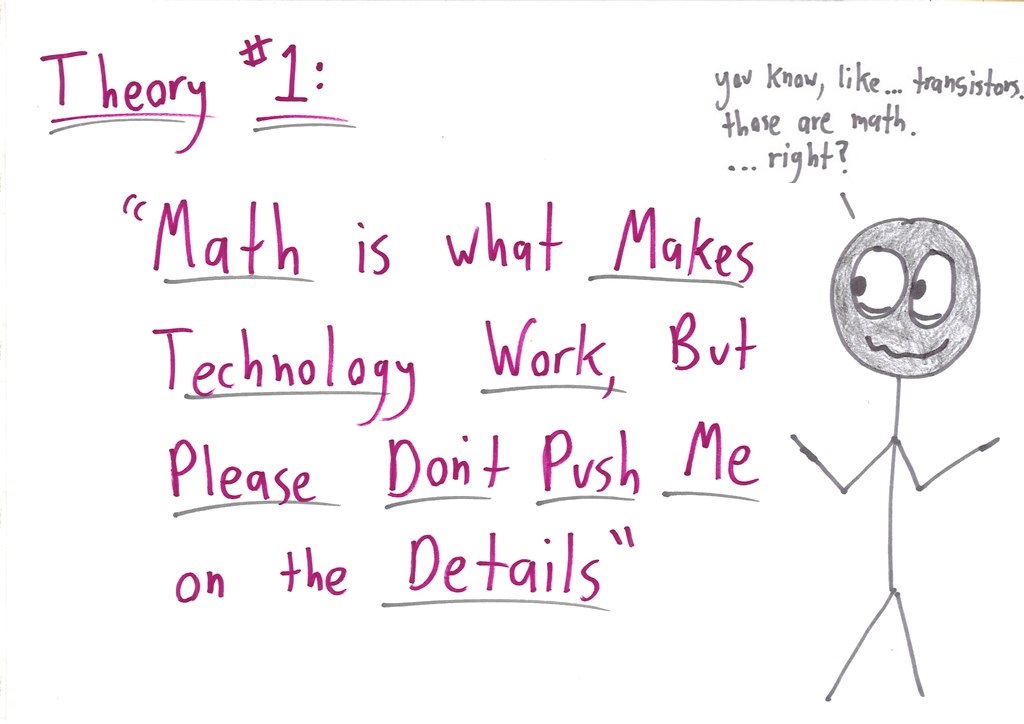 Theory #1:
you know, like... transistors.
those are math.
... right?
"Math is what Makes
Technology Work, But
Please Don't Push Me
on the Details"